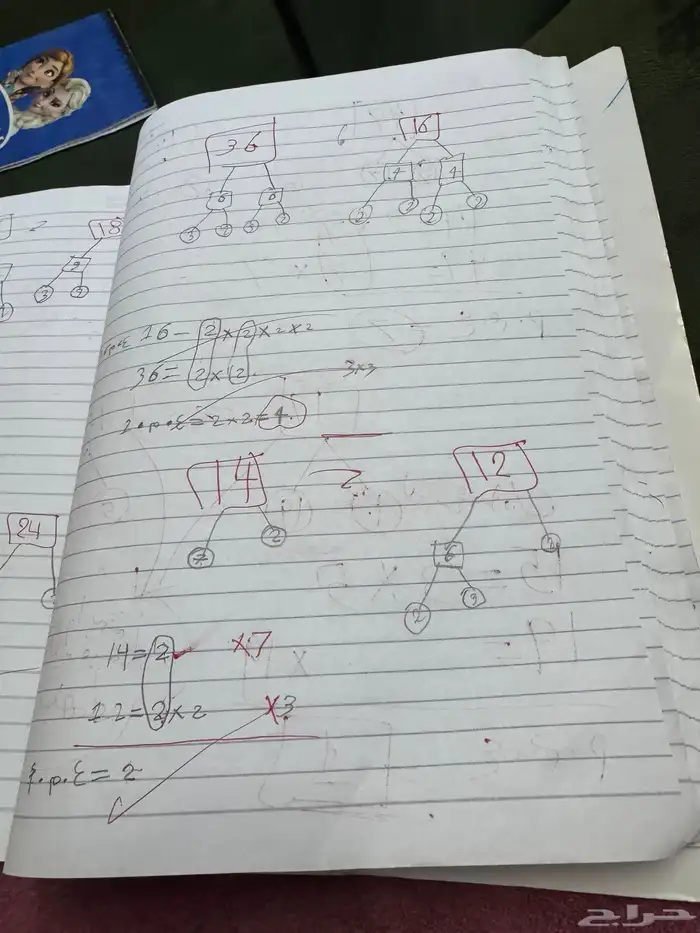 36 16
6 6 4 4
3 2 3 2 2 2 2 2
16 = 2 × 2 × 2 × 2
36 = 2 × 2 3×3
ع.م.أ = 2×2=4
14 12
7 2 6 2
2 3
14 = 2 ×7
12 = 2 × 2 ×3
ع.م.أ = 2
18
2
3 2
24
حراج